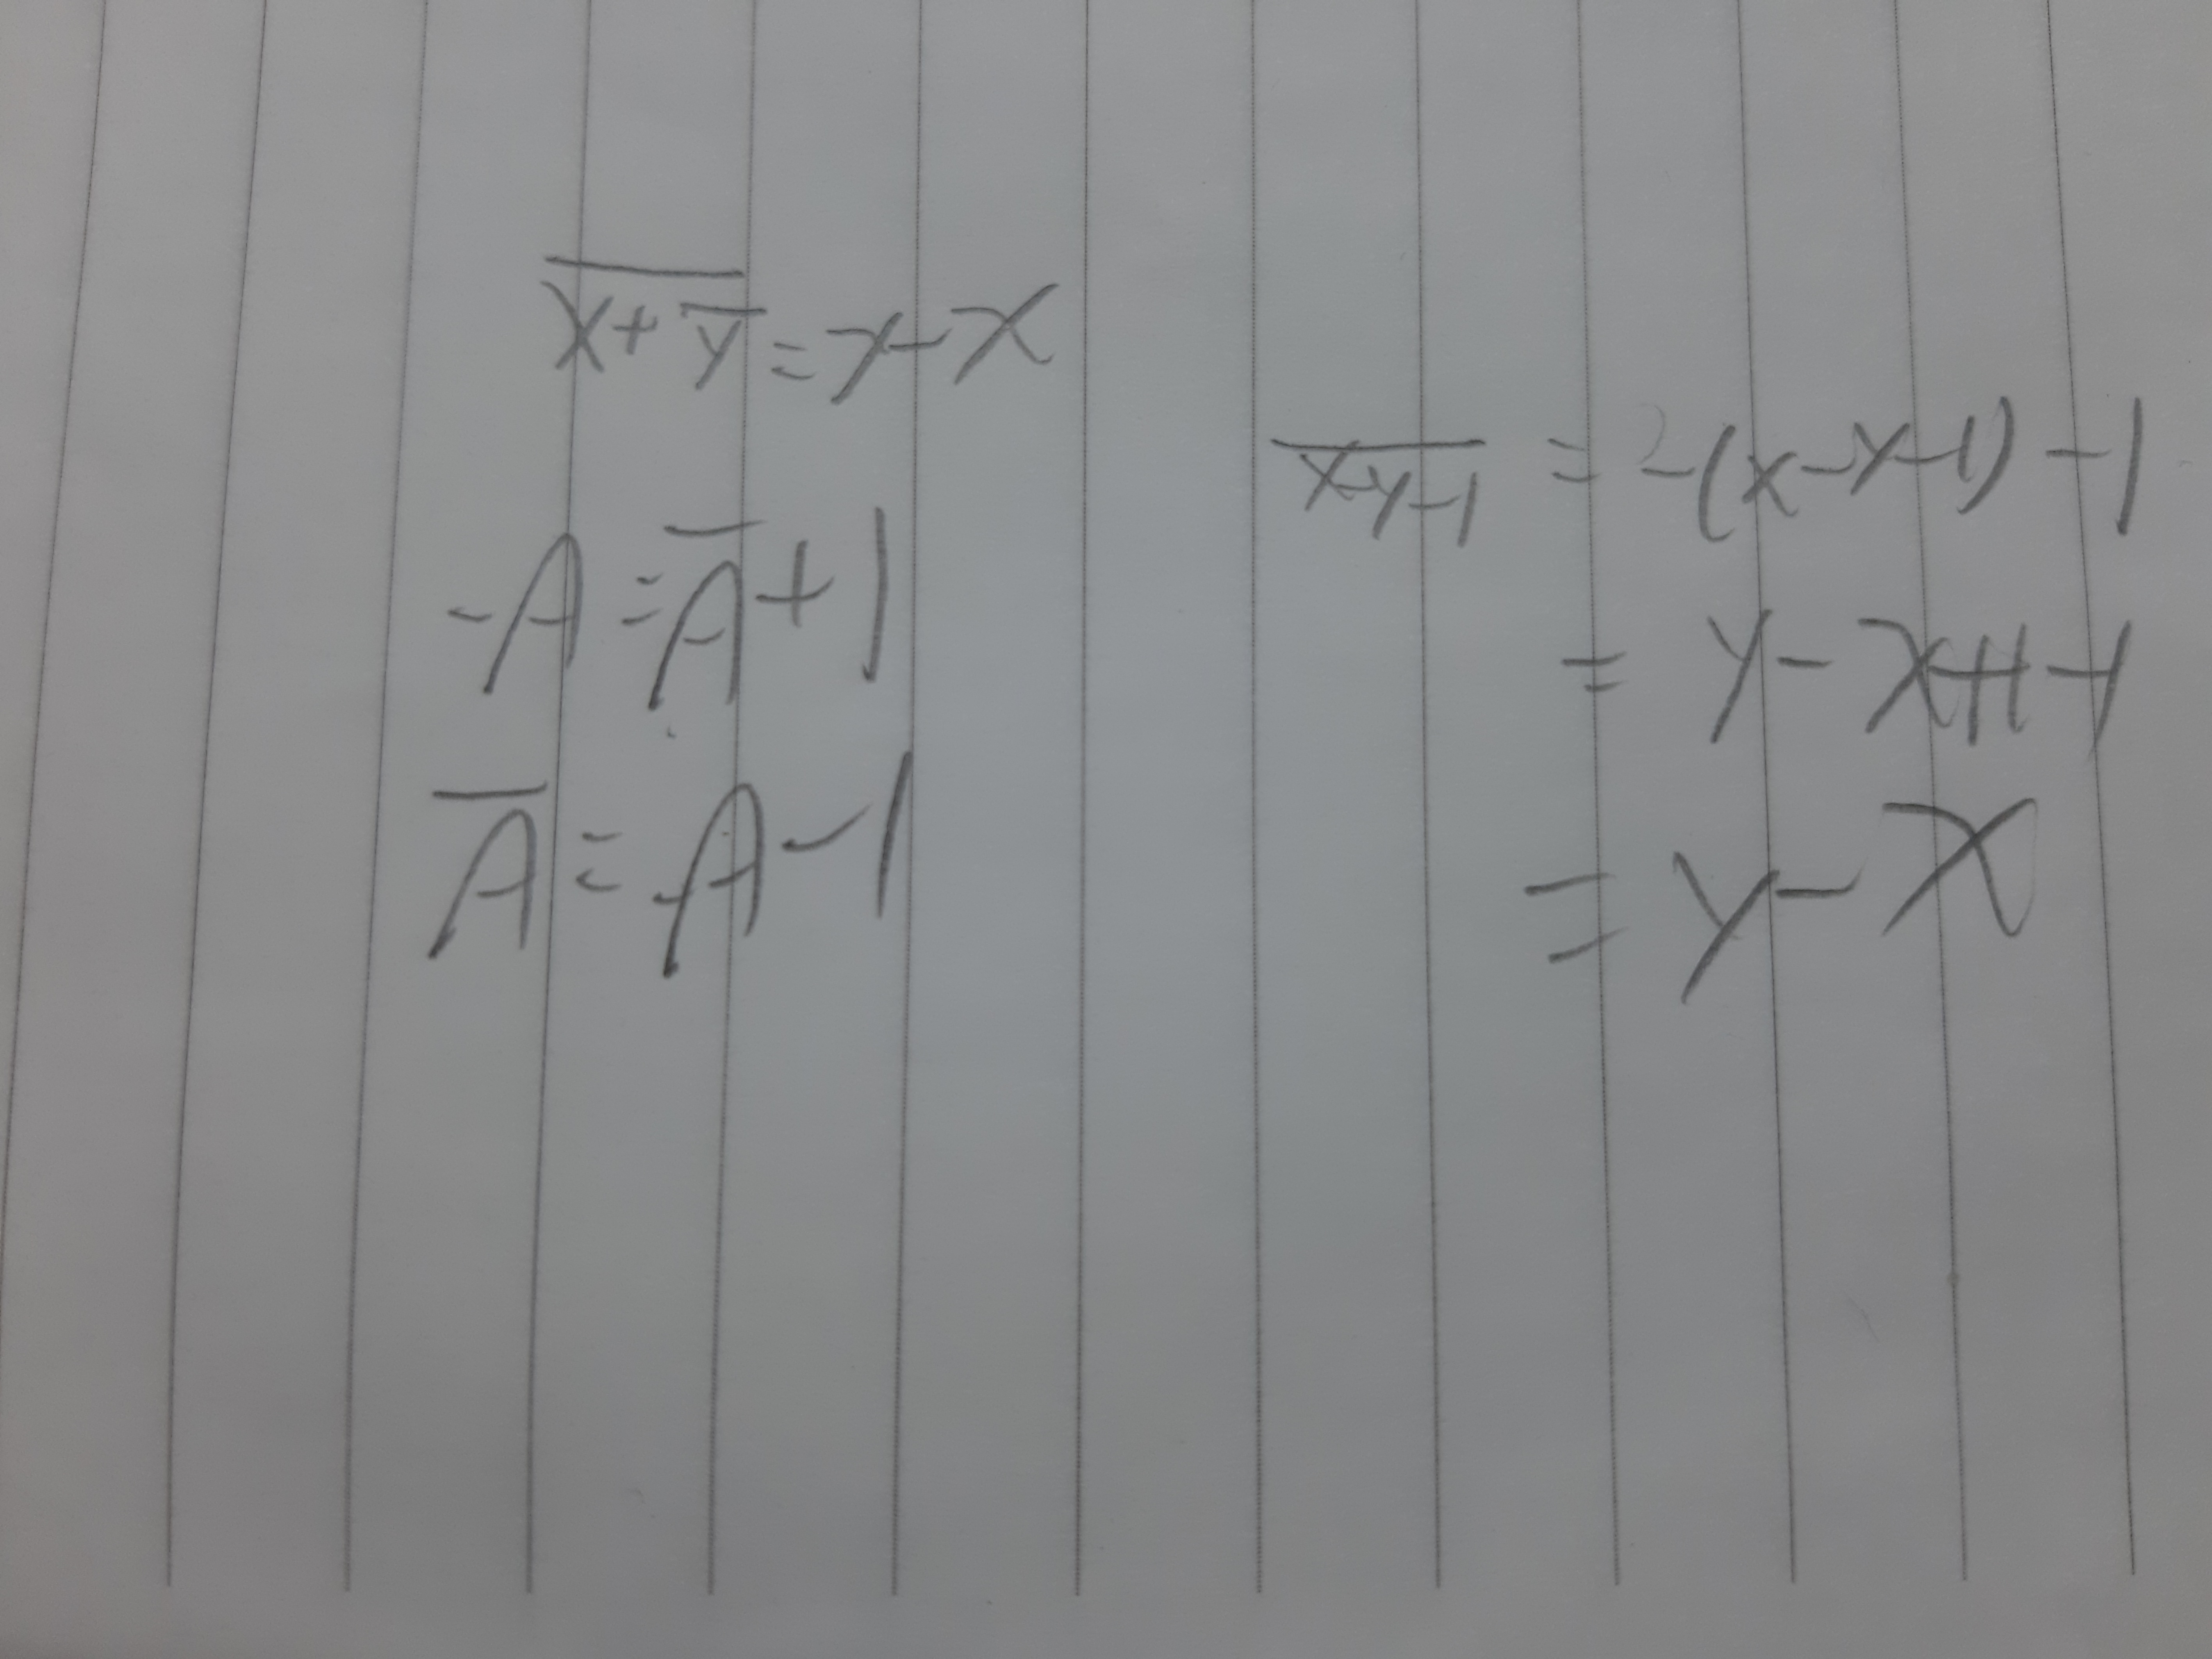 x̅+̅y̅̅ = y-x
-A = A̅+1
A̅ = -A-1
x̅-̅y̅-̅1̅ = -(x-y-1)-1
= y-x+1-1
= y-x